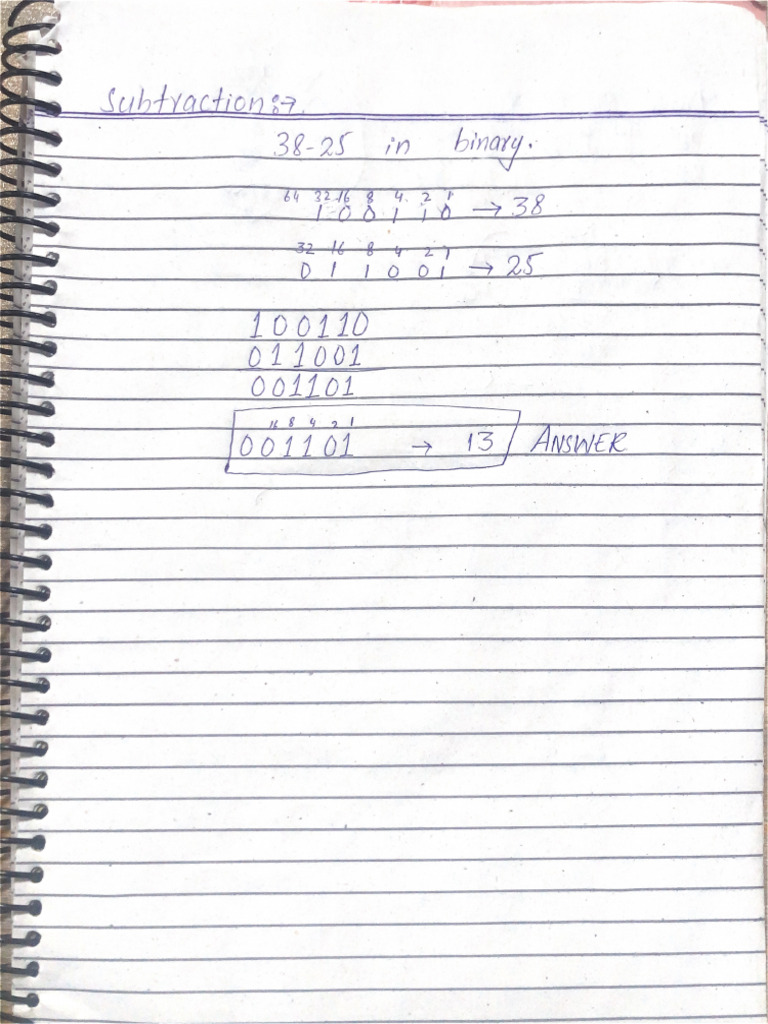 Subtraction:→
38-25 in binary.
64 32 16 8 4 2 1
1 0 0 1 1 0 → 38
32 16 8 4 2 1
0 1 1 0 0 1 → 25
100110
011001
001101
16 8 4 2 1
001101 → 13 ANSWER